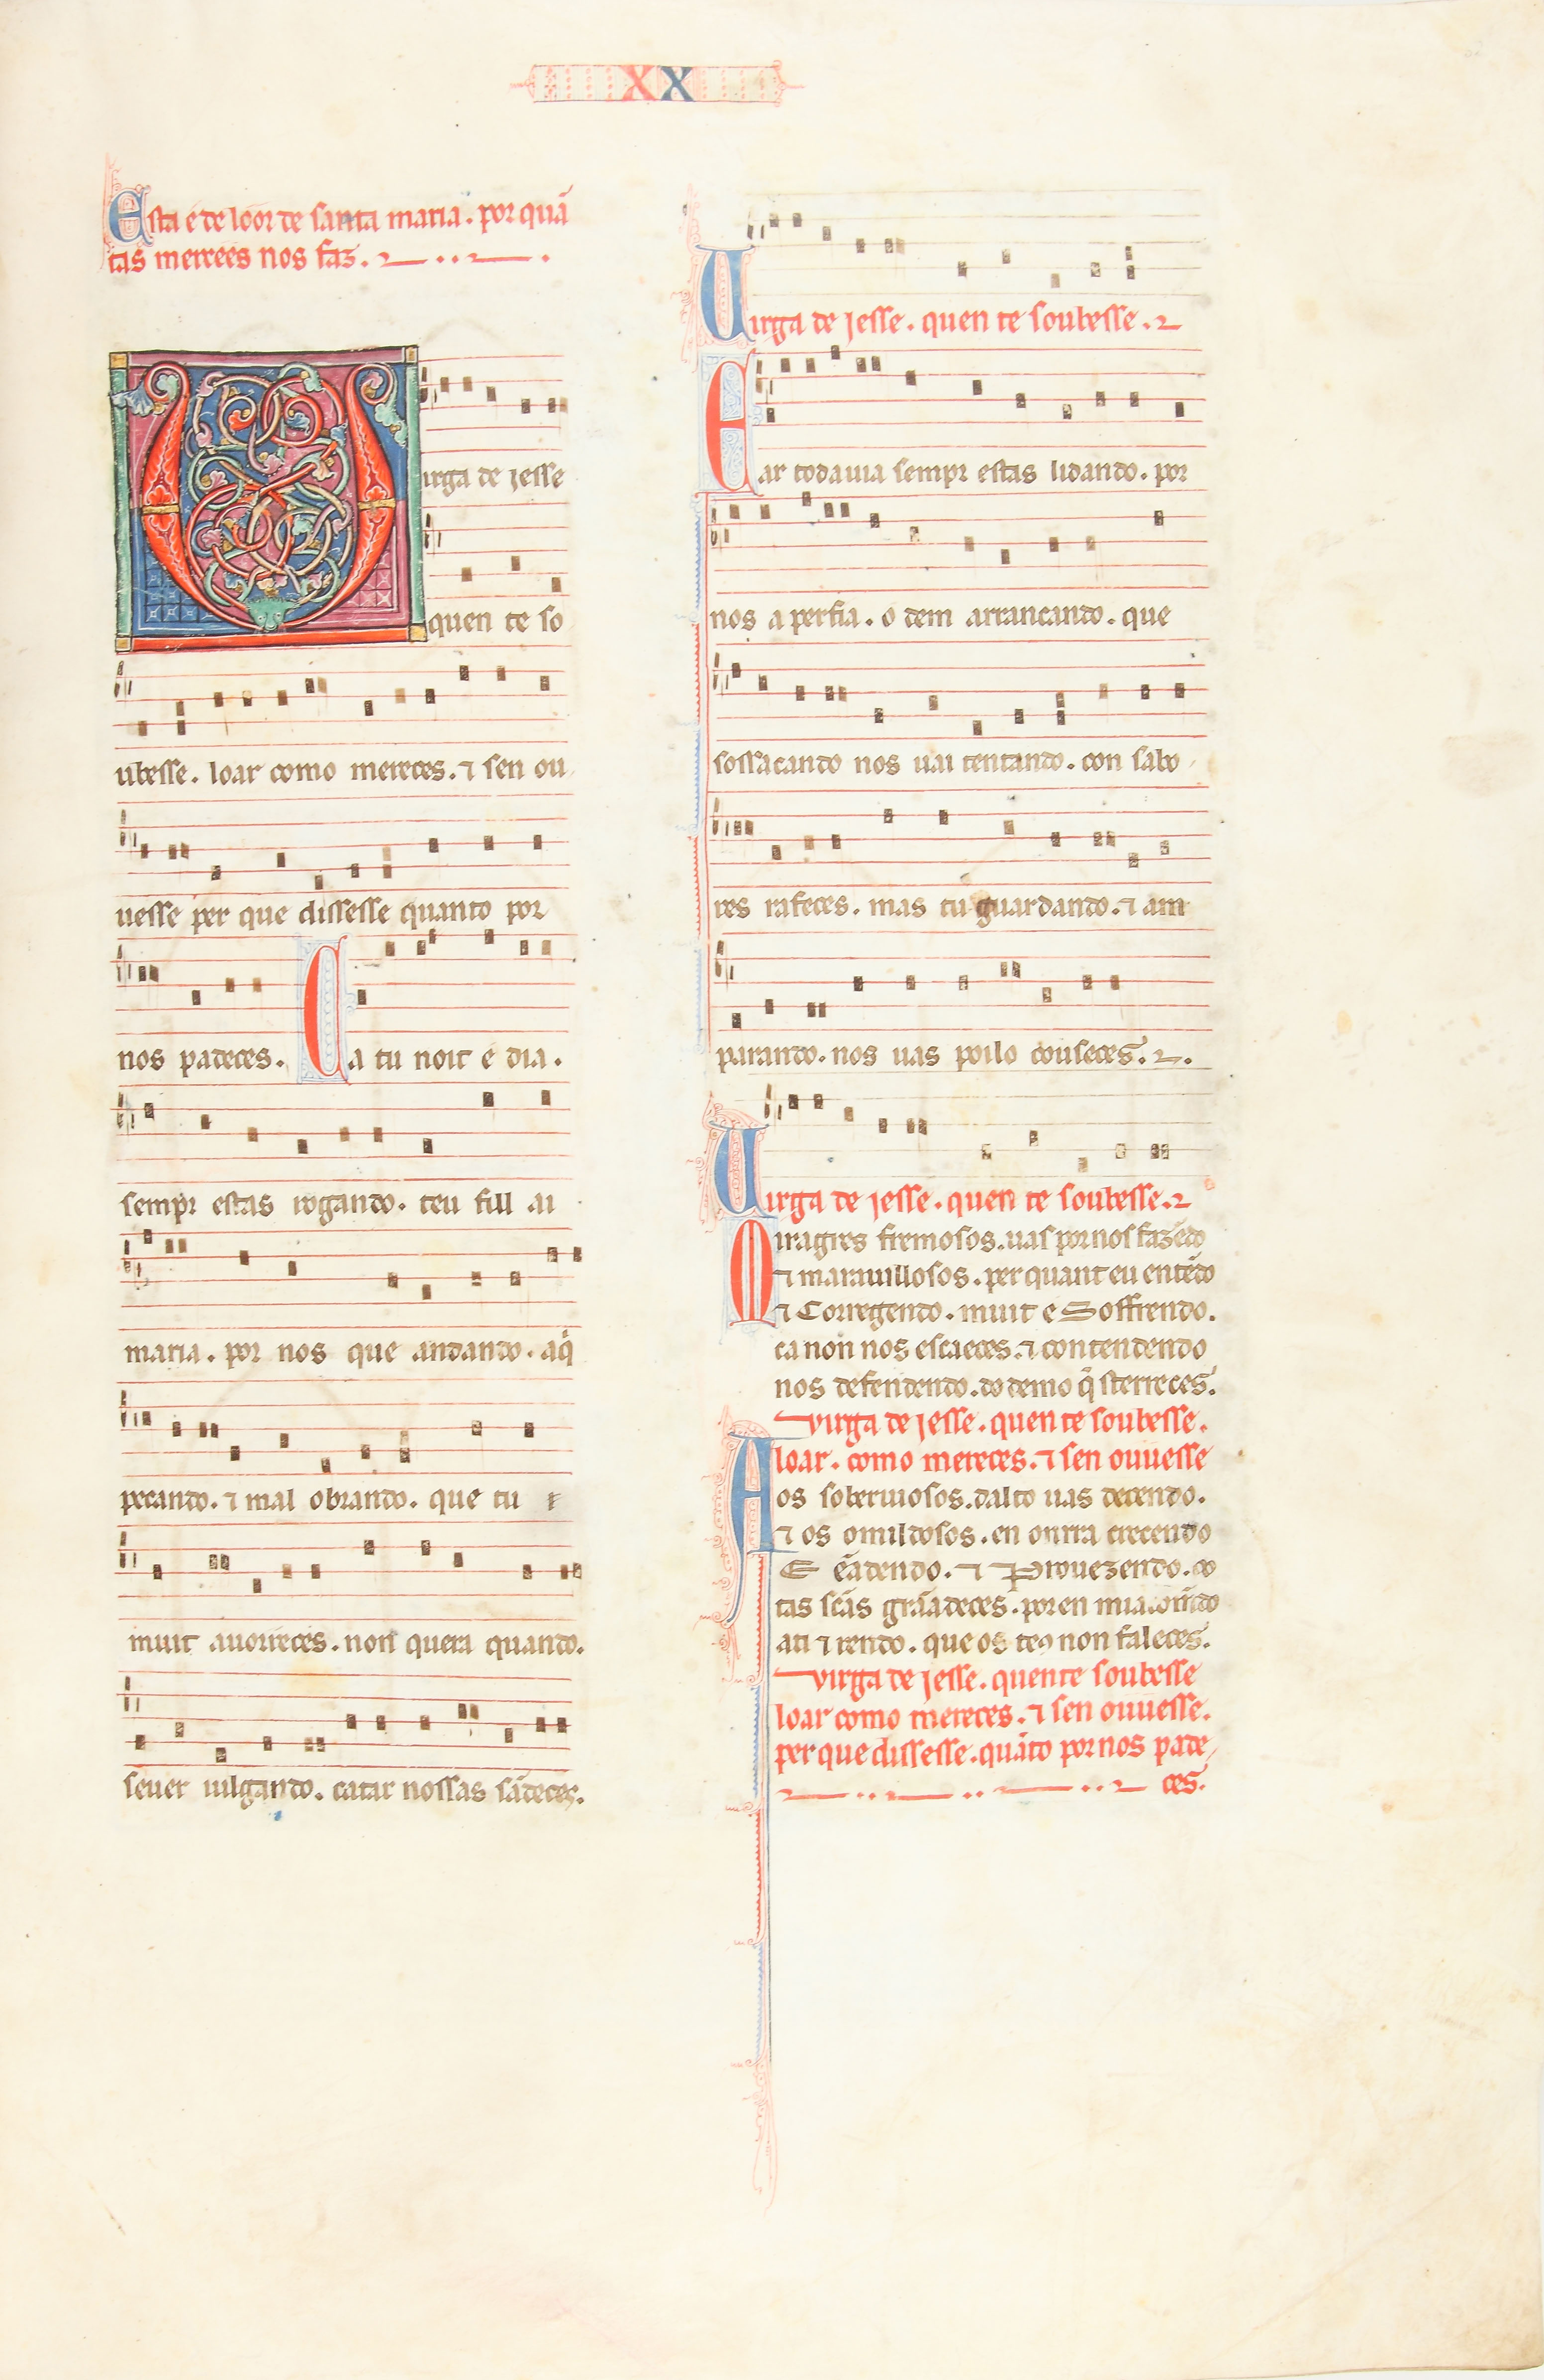 XX
Esta é de loor de santa maria. por quã
tas merçees nos faz.
Virga de jesse
quen te so
ubesse. loar como mereces. ⁊ sen ou
uesse per que dissesse quanto por
nos padeces. Ca tu noit e dia.
sempr estas rogando. teu fill ai
maria. por nos que andando. aq̇
pecando. ⁊ mal obrando. que tu
muit auorreces. non quera quando.
seuer iulgando. catar nossas sãdeces.
Uirga de jesse. quen te soubesse.
Car todauia sempr estas lidando. por
nos a perfia. o dem arrancando. que
sossacando nos uai tentando. con sabo
res rafeces. mas tu guardando. ⁊ am
parando. nos uas poilo couseces.
Uirga de jesse. quen te soubesse.
Miragres fremosos. uas por nos fazẽdo
⁊ marauillosos. per quant eu entẽdo
⁊ Corregendo. muit e Soffrendo.
ca non nos escaeces. ⁊ contendendo
nos defendendo. do demo q̇ sterreces.
virga de jesse. quen te soubesse.
loar. como mereces. ⁊ sen ouuesse
Aos soberuiosos. dalto uas decendo.
⁊ os omildosos. en onrra crecendo
E ẽadendo. ⁊ Prouezendo. co
tas scãs grãadeces. por en
ati ⁊ rendo. que os teꝯ non faleces.
virga de jesse. quen te soubesse
loar como mereces. ⁊ sen ouuesse.
per que dissesse. quãto por nos pade
ces.